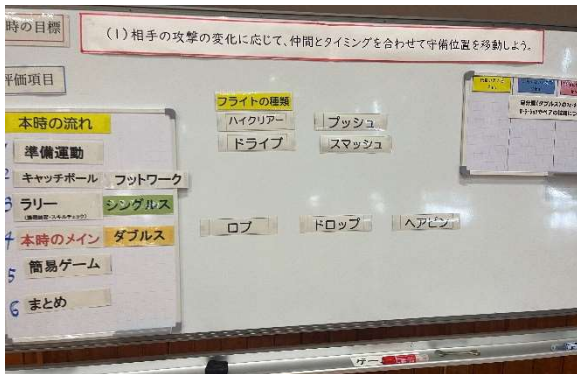 時の目標
(1)相手の攻撃の変化に応じて、仲間とタイミングを合わせて守備位置を移動しよう。
評価項目
本時の流れ
準備運動
2 キャッチボール フットワーク
3 ラリー シングルス
4 本時のメイン ダブルス
5 簡易ゲーム
6 まとめ
フライトの種類
ハイクリアー プッシュ
ドライブ スマッシュ
ロブ ドロップ ヘアピン
ゲー